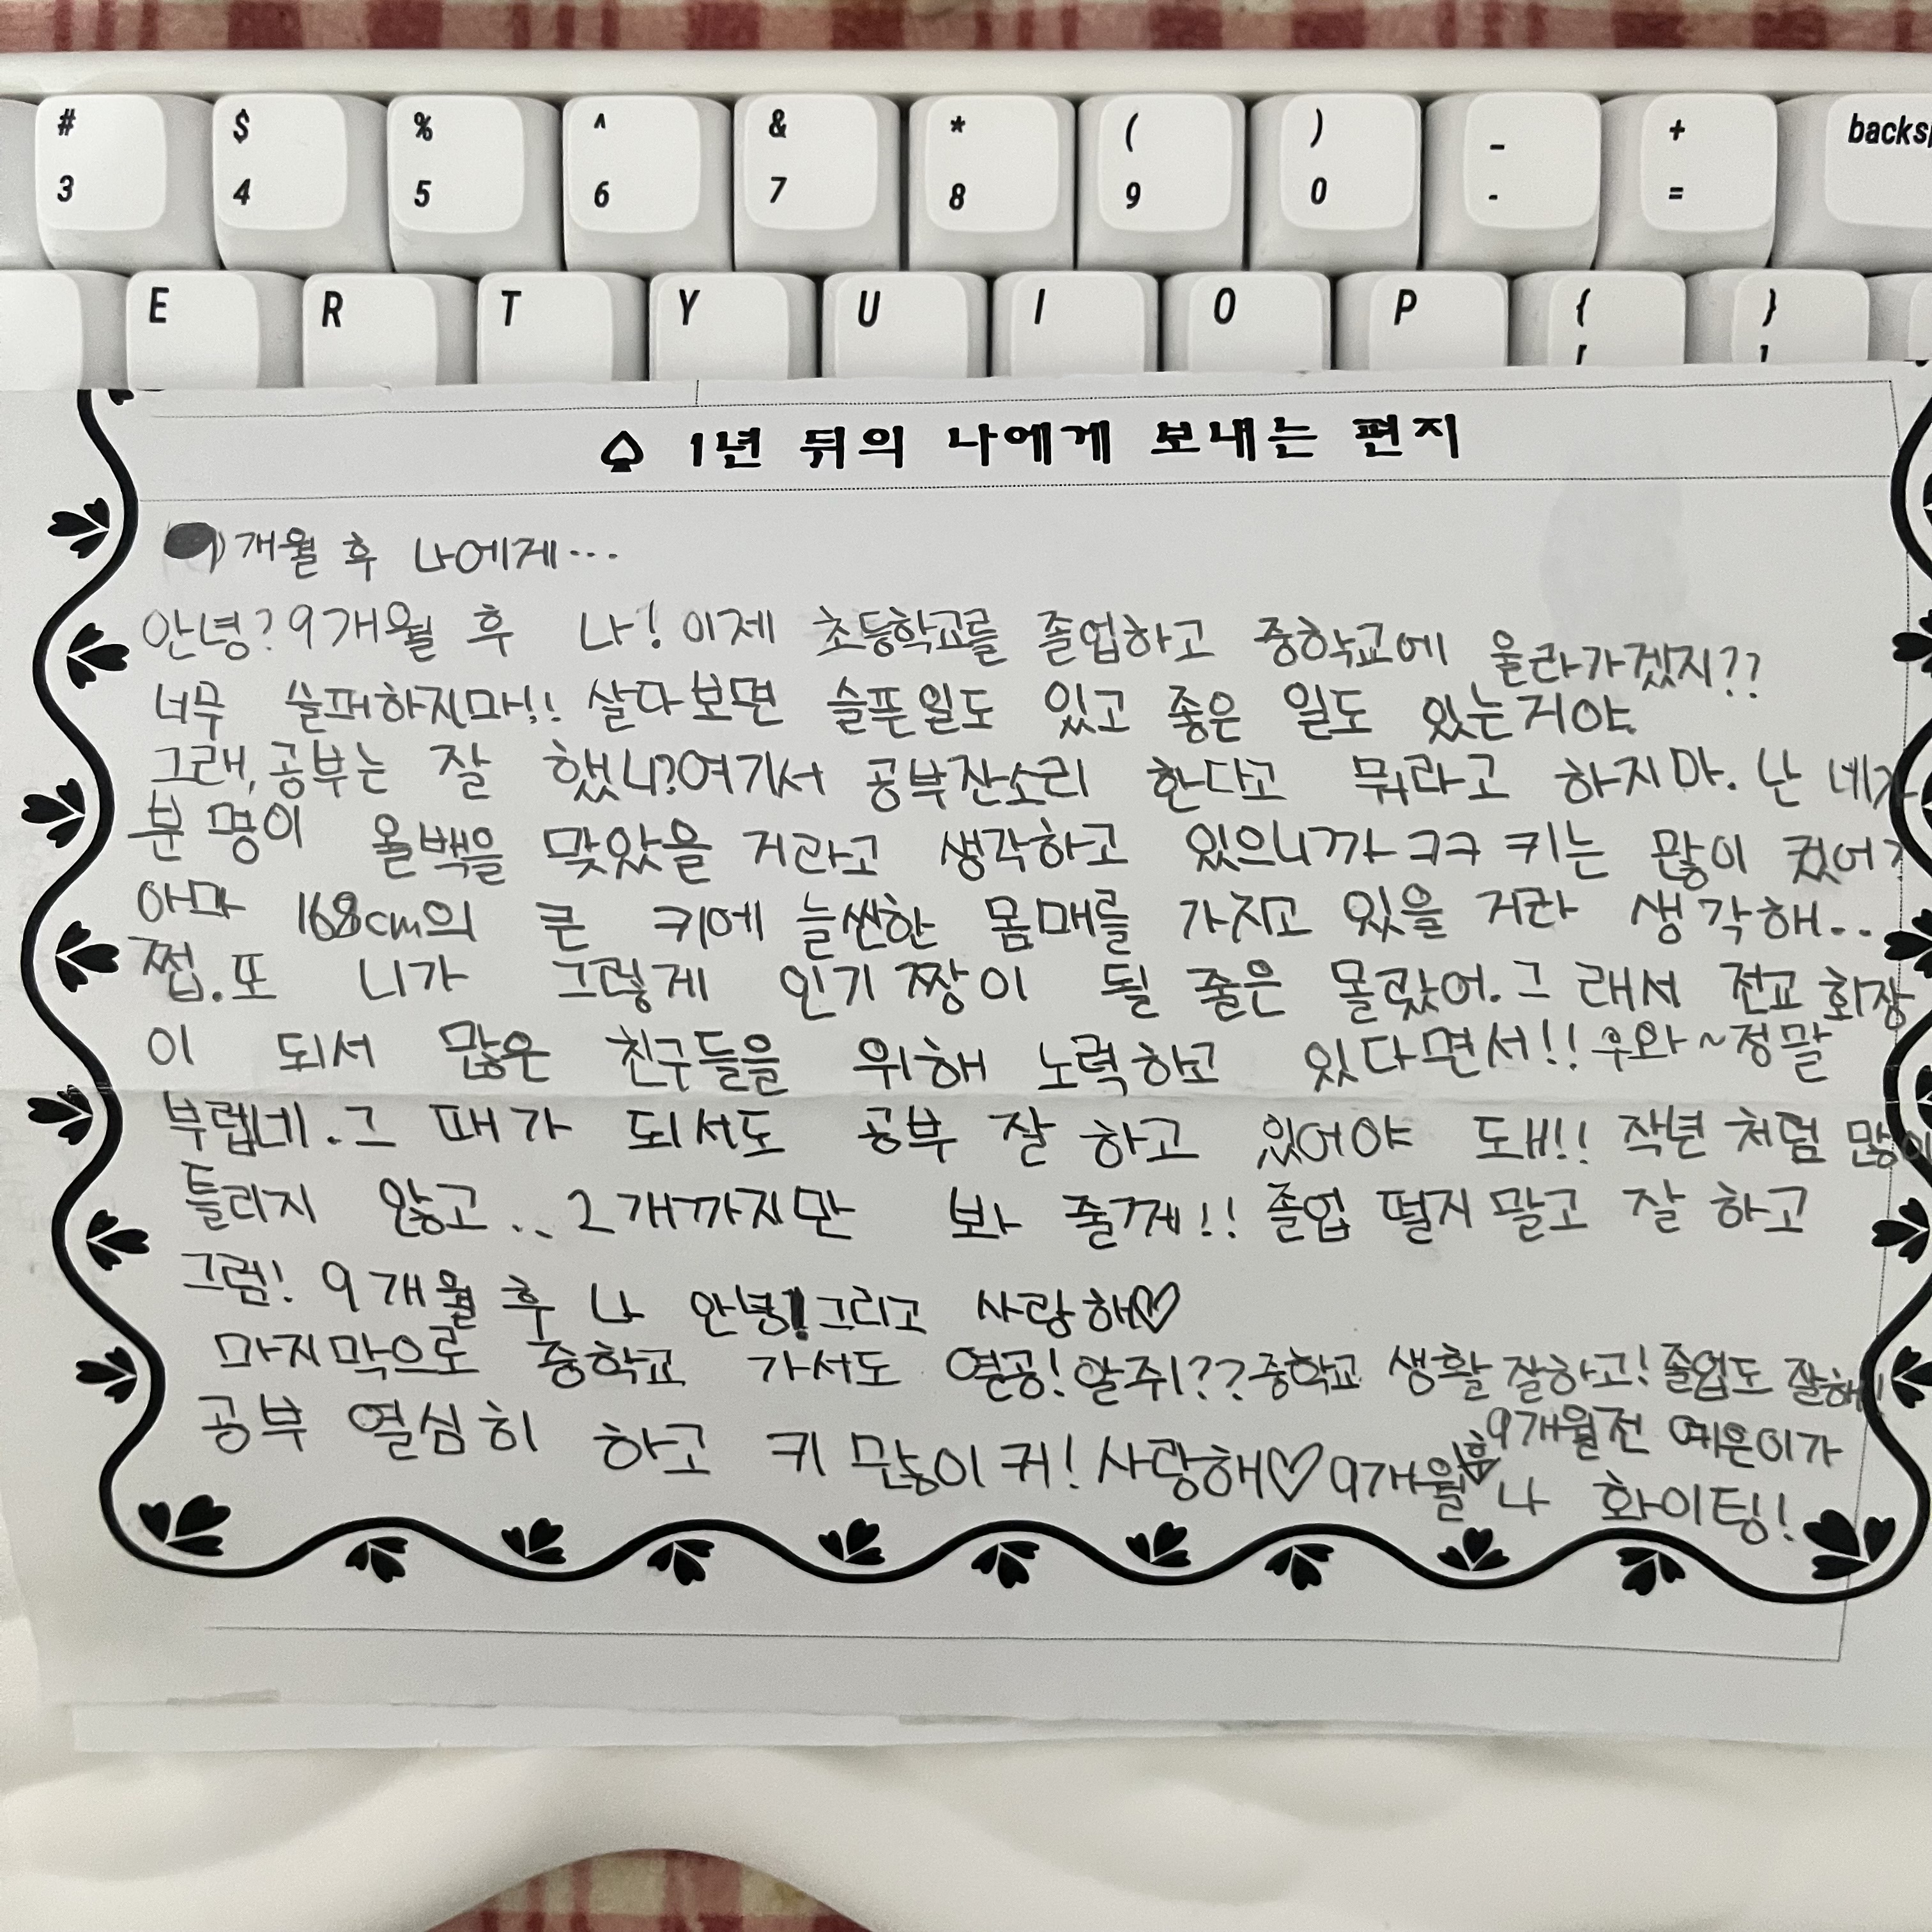 # $ % ^ & * ( ) _ +
3 4 5 6 7 8 9 0 - = backsp
E R T Y U I O P { }
♤ 1년 뒤의 나에게 보내는 편지
개월 후 나에게...
안녕? 9개월 후 나! 이제 초등학교를 졸업하고 중학교에 올라가겠지??
너무 슬퍼하지마!! 살다보면 슬픈일도 있고 좋은 일도 있는거야.
그래, 공부는 잘 했니? 여기서 공부잔소리 한다고 뭐라고 하지마. 난 네가
분명이 올백을 맞았을 거라고 생각하고 있으니까 ㅋㅋ 키는 많이 컸어?
아마 168cm의 큰 키에 늘씬한 몸매를 가지고 있을 거라 생각해..
쩝. 또 니가 그렇게 인기짱이 될 줄은 몰랐어. 그래서 전교 회장
이 되서 많은 친구들을 위해 노력하고 있다면서!! 우와~정말
부럽네. 그 때가 되서도 공부 잘 하고 있어야 도ㅐ!! 작년 처럼 많이
틀리지 않고.. 2개까지만 봐 줄께!! 졸업 떨지말고 잘 하고
그럼! 9개월 후 나 안녕! 그리고 사랑해♡
마지막으로 중학교 가서도 열공! 알쥐?? 중학교 생활 잘하고! 졸업도 잘해!
공부 열심히 하고 키 많이 커! 사랑해♡ 9개월후 나 화이팅!
9개월전 예은이가